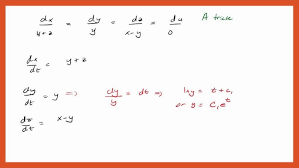 dx/y+z = dy/y = dz/x-y = du/0 A trick
dx/dt = y+z
dy/dt = y ⇒ dy/y = dt ⇒ lny = t+c₁
or y = C₁eᵗ
dz/dt = x-y